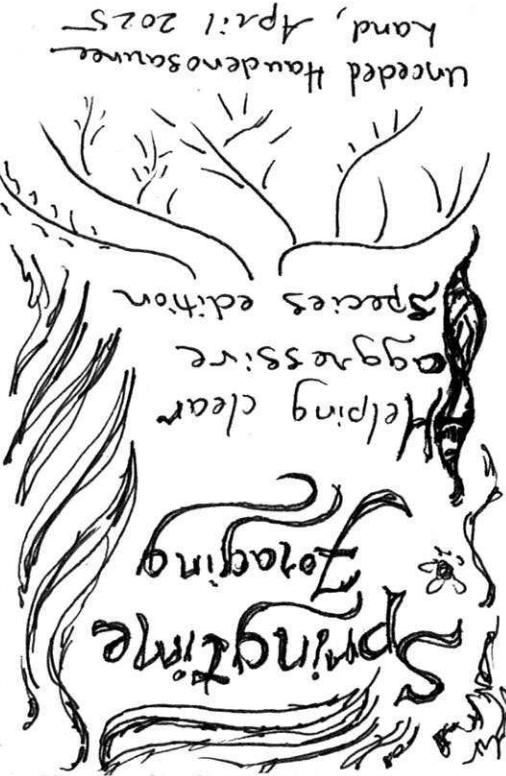 Springtime
Foraging
Helping clear
aggressive
Species edition
Unceded Haudenosaunee
Land, April 2025